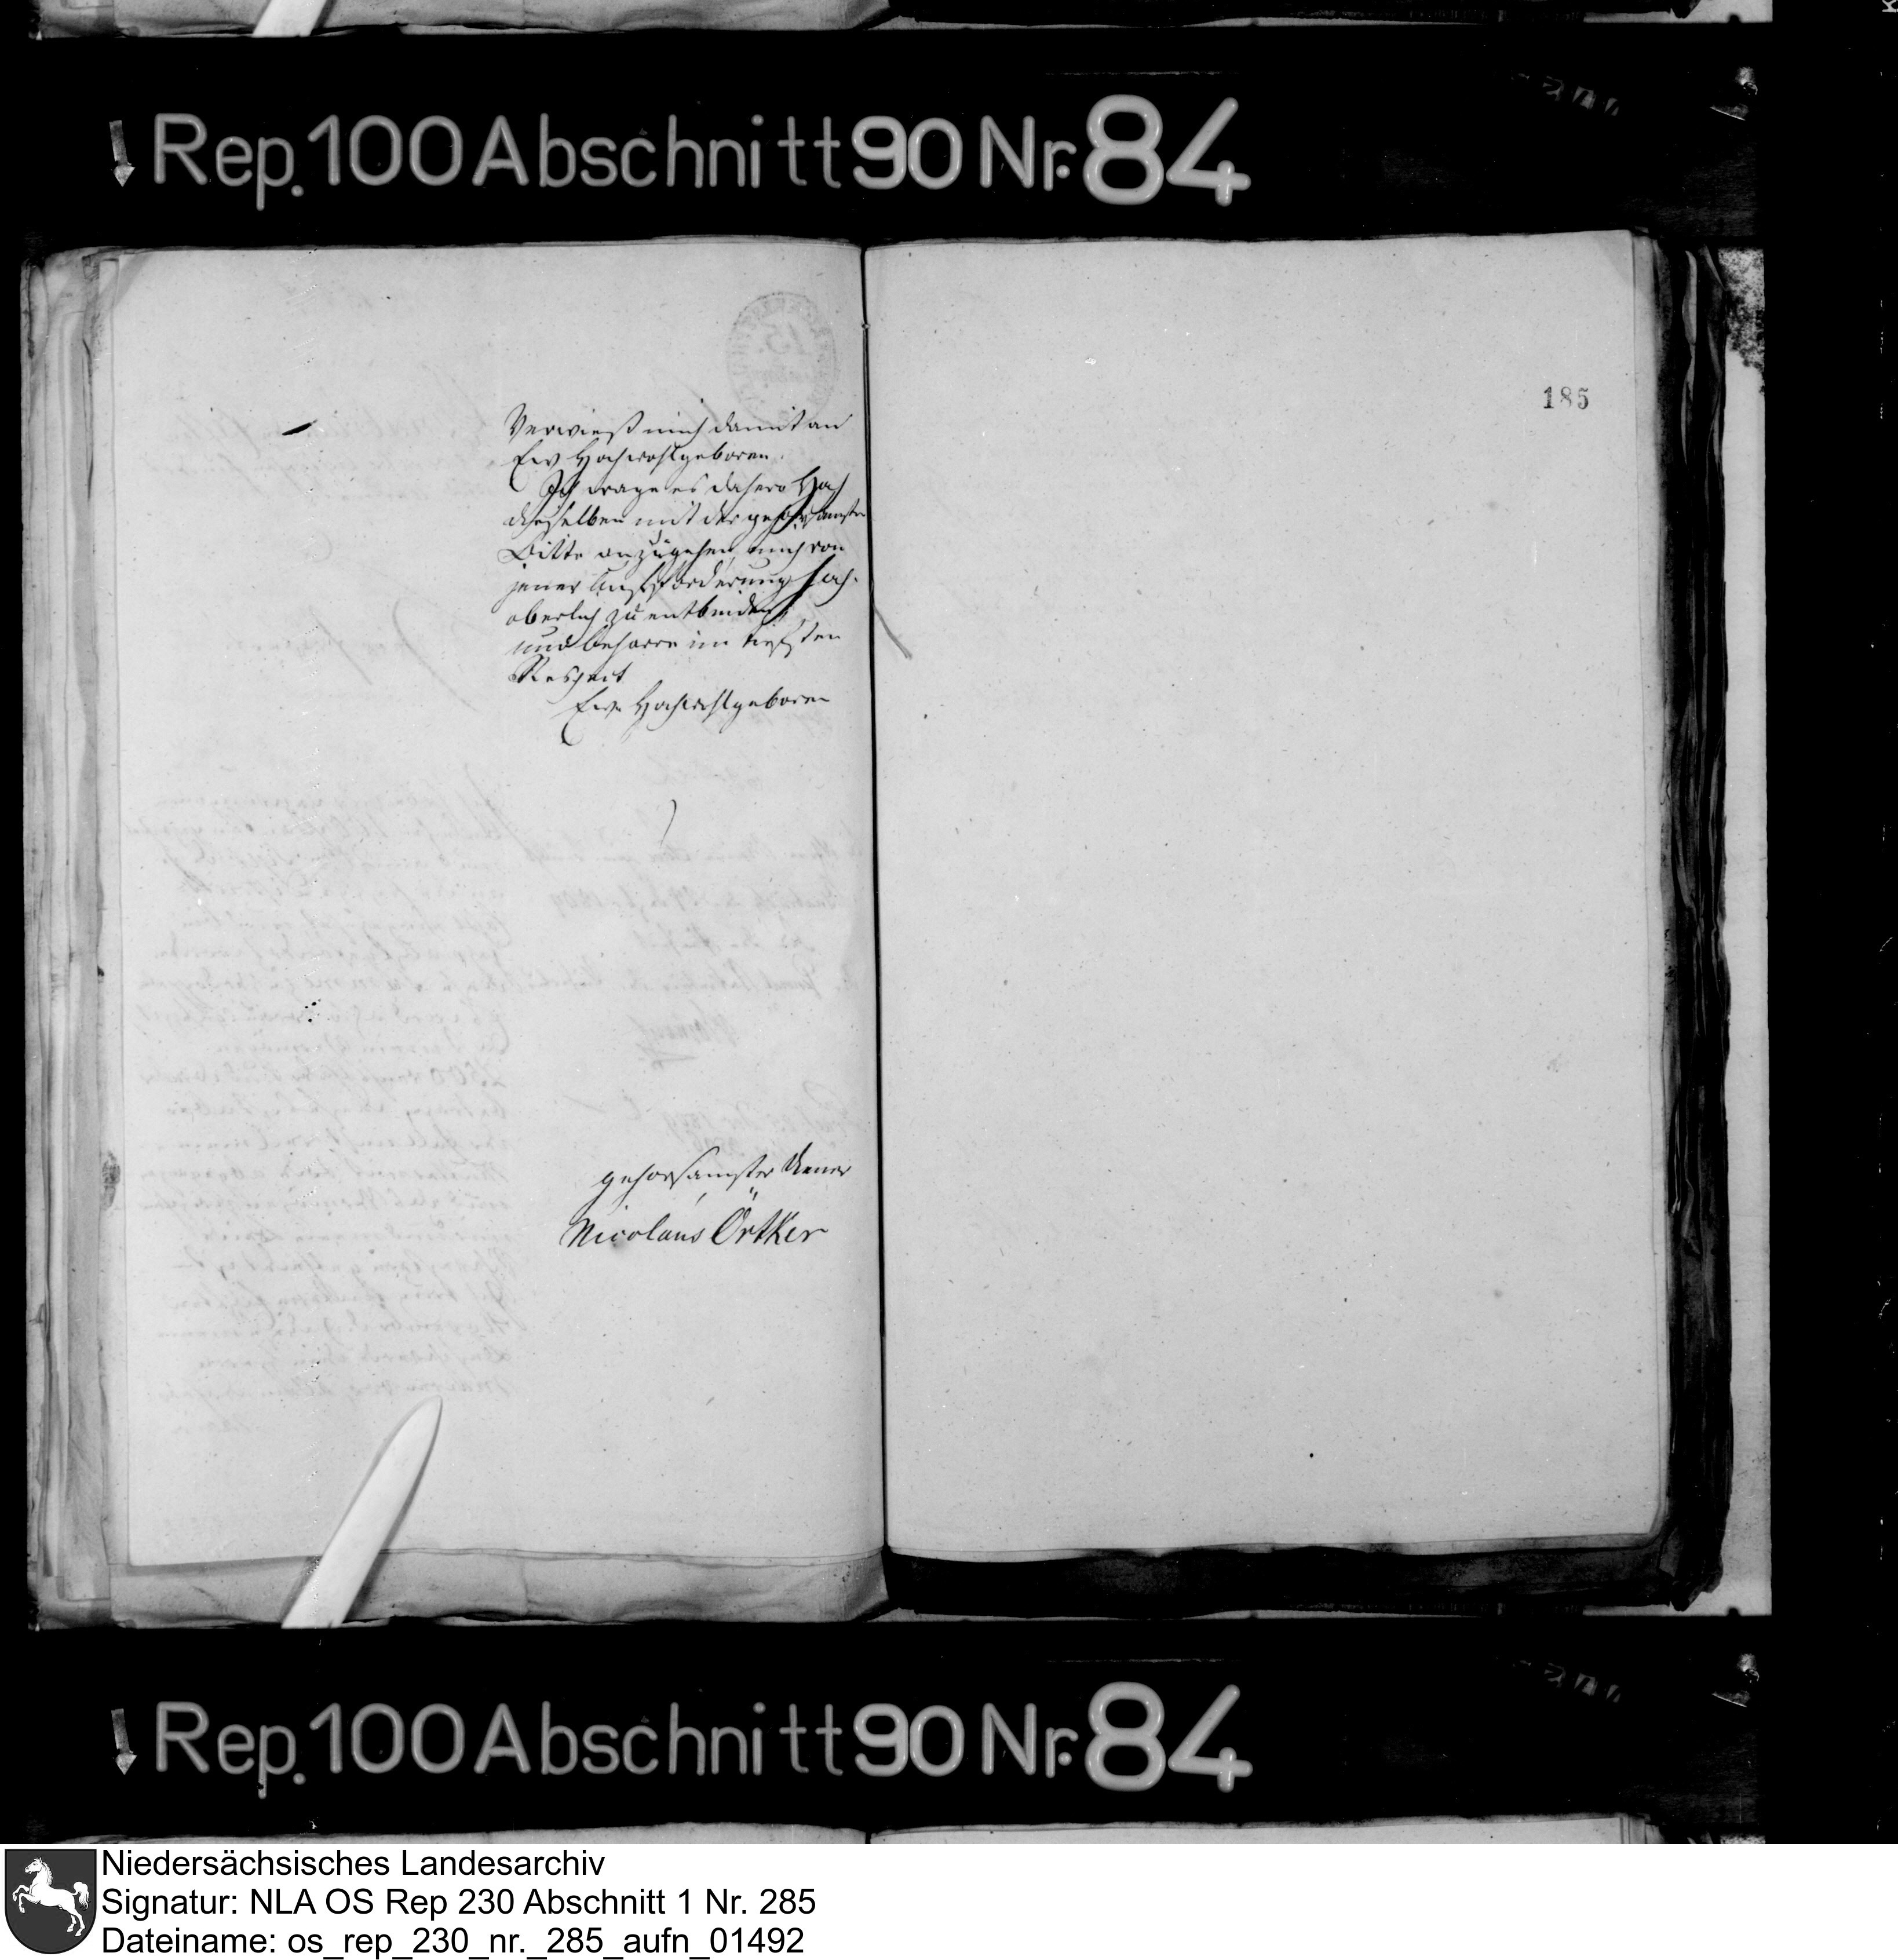 Rep. 100 Abschnitt 90 Nr. 84
185
15.
Verwieß mich damit an
Ew Hochwohlgeboren.
Ich wage es dahero Hoch
dieselben mit der gehorsamsten
Bitte anzugehen, mich von
jener Aufforderung hoch-
oberlich zu entbinden,
und beharre im tiefsten
Respect
Ew. Hochwohlgeboren
gehorsamster Diener
Nicolaus Örtker
Rep. 100 Abschnitt 90 Nr. 84
Niedersächsisches Landesarchiv
Signatur: NLA OS Rep 230 Abschnitt 1 Nr. 285
Dateiname: os_rep_230_nr._285_aufn_01492